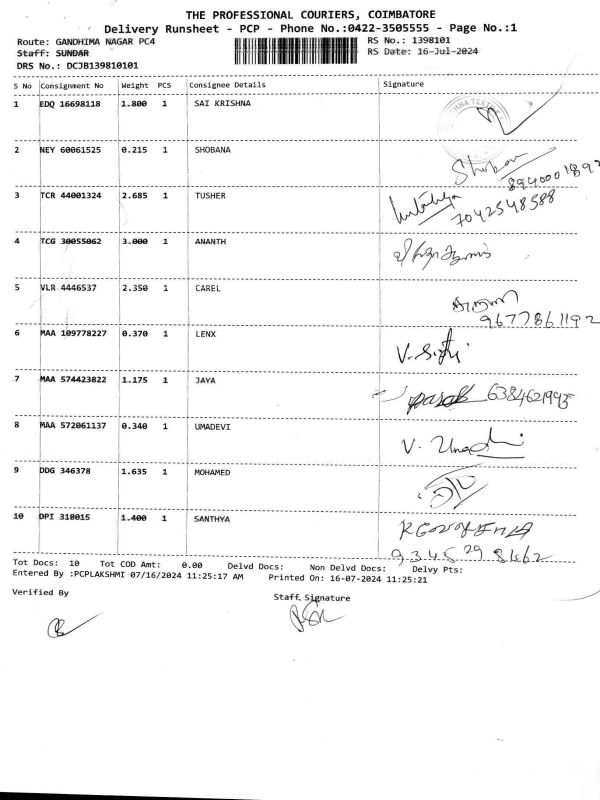 THE PROFESSIONAL COURIERS, COIMBATORE
Delivery Runsheet - PCP - Phone No.:0422-3505555 - Page No.:1
Route: GANDHIMA NAGAR PC4 RS No.: 1398101
Staff: SUNDAR RS Date: 16-Jul-2024
DRS No.: DCJB139810101
S No Consignment No Weight PCS Consignee Details Signature
1 EDQ 16698118 1.800 1 SAI KRISHNA
2 NEY 60061525 0.215 1 SHOBANA
Shoban
8940001892
3 TCR 44001324 2.685 1 TUSHER
7042548588
4 TCG 30055062 3.000 1 ANANTH
5 VLR 4446537 2.350 1 CAREL
9677861192
6 MAA 109778227 0.370 1 LENX
7 MAA 574423822 1.175 1 JAYA
6384621993
8 MAA 572061137 0.340 1 UMADEVI
V. Umadevi
9 DDG 346378 1.635 1 MOHAMED
10 DPI 318015 1.400 1 SANTHYA
9345298462
Tot Docs: 10 Tot COD Amt: 0.00 Delvd Docs: Non Delvd Docs: Delvy Pts:
Entered By :PCPLAKSHMI 07/16/2024 11:25:17 AM Printed On: 16-07-2024 11:25:21
Verified By Staff Signature